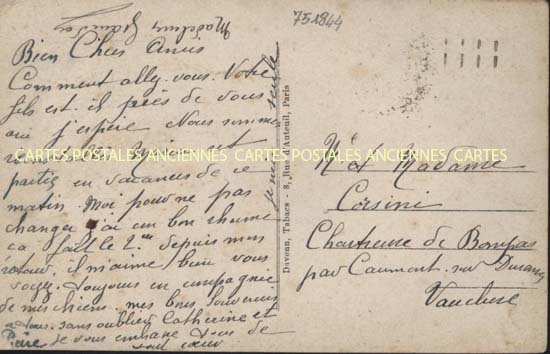 751844
Madeleine
Bien Chers Amis
Comment allez-vous. Votre
fils est-il près de vous
oui j'espère. Nous sommes
CARTES POSTALES ANCIENNES CARTES POSTALES ANCIENNES CARTES
partis en vacances de ce
matin. Moi pour ne pas
changer j'ai un bon rhume
ça fait le 2me depuis mon
retour, il m'aime bien vous
voyez. Toujours en compagnie
de mes chiens. mes bons souvenirs
à tous. sans oublier Catherine et
Pierre je vous embrasse tous de
tout cœur
Daveau, Tabacs - 8, Rue d'Auteuil, Paris
Mr et Madame
Corsini
Chartreuse de Bompas
par Caumont-sur-Durance
Vaucluse